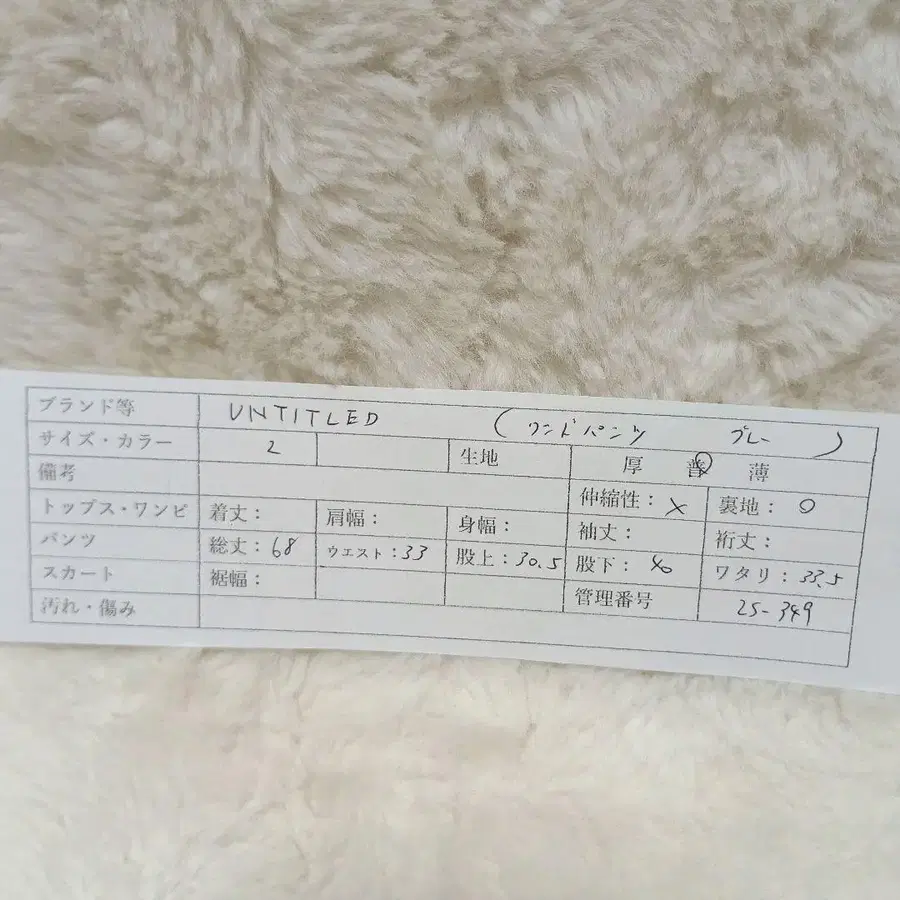 ブランド等 UNTITLED (ワンドパンツ グレー)
サイズ・カラー 2 生地 厚 普 薄
備考 伸縮性: × 裏地: ○
トップス・ワンピ 着丈: 肩幅: 身幅: 袖丈: 裄丈:
パンツ 総丈:68 ウエスト:33 股上:30.5 股下: 40 ワタリ: 33.5
スカート 裾幅: 管理番号 25-349
汚れ・傷み